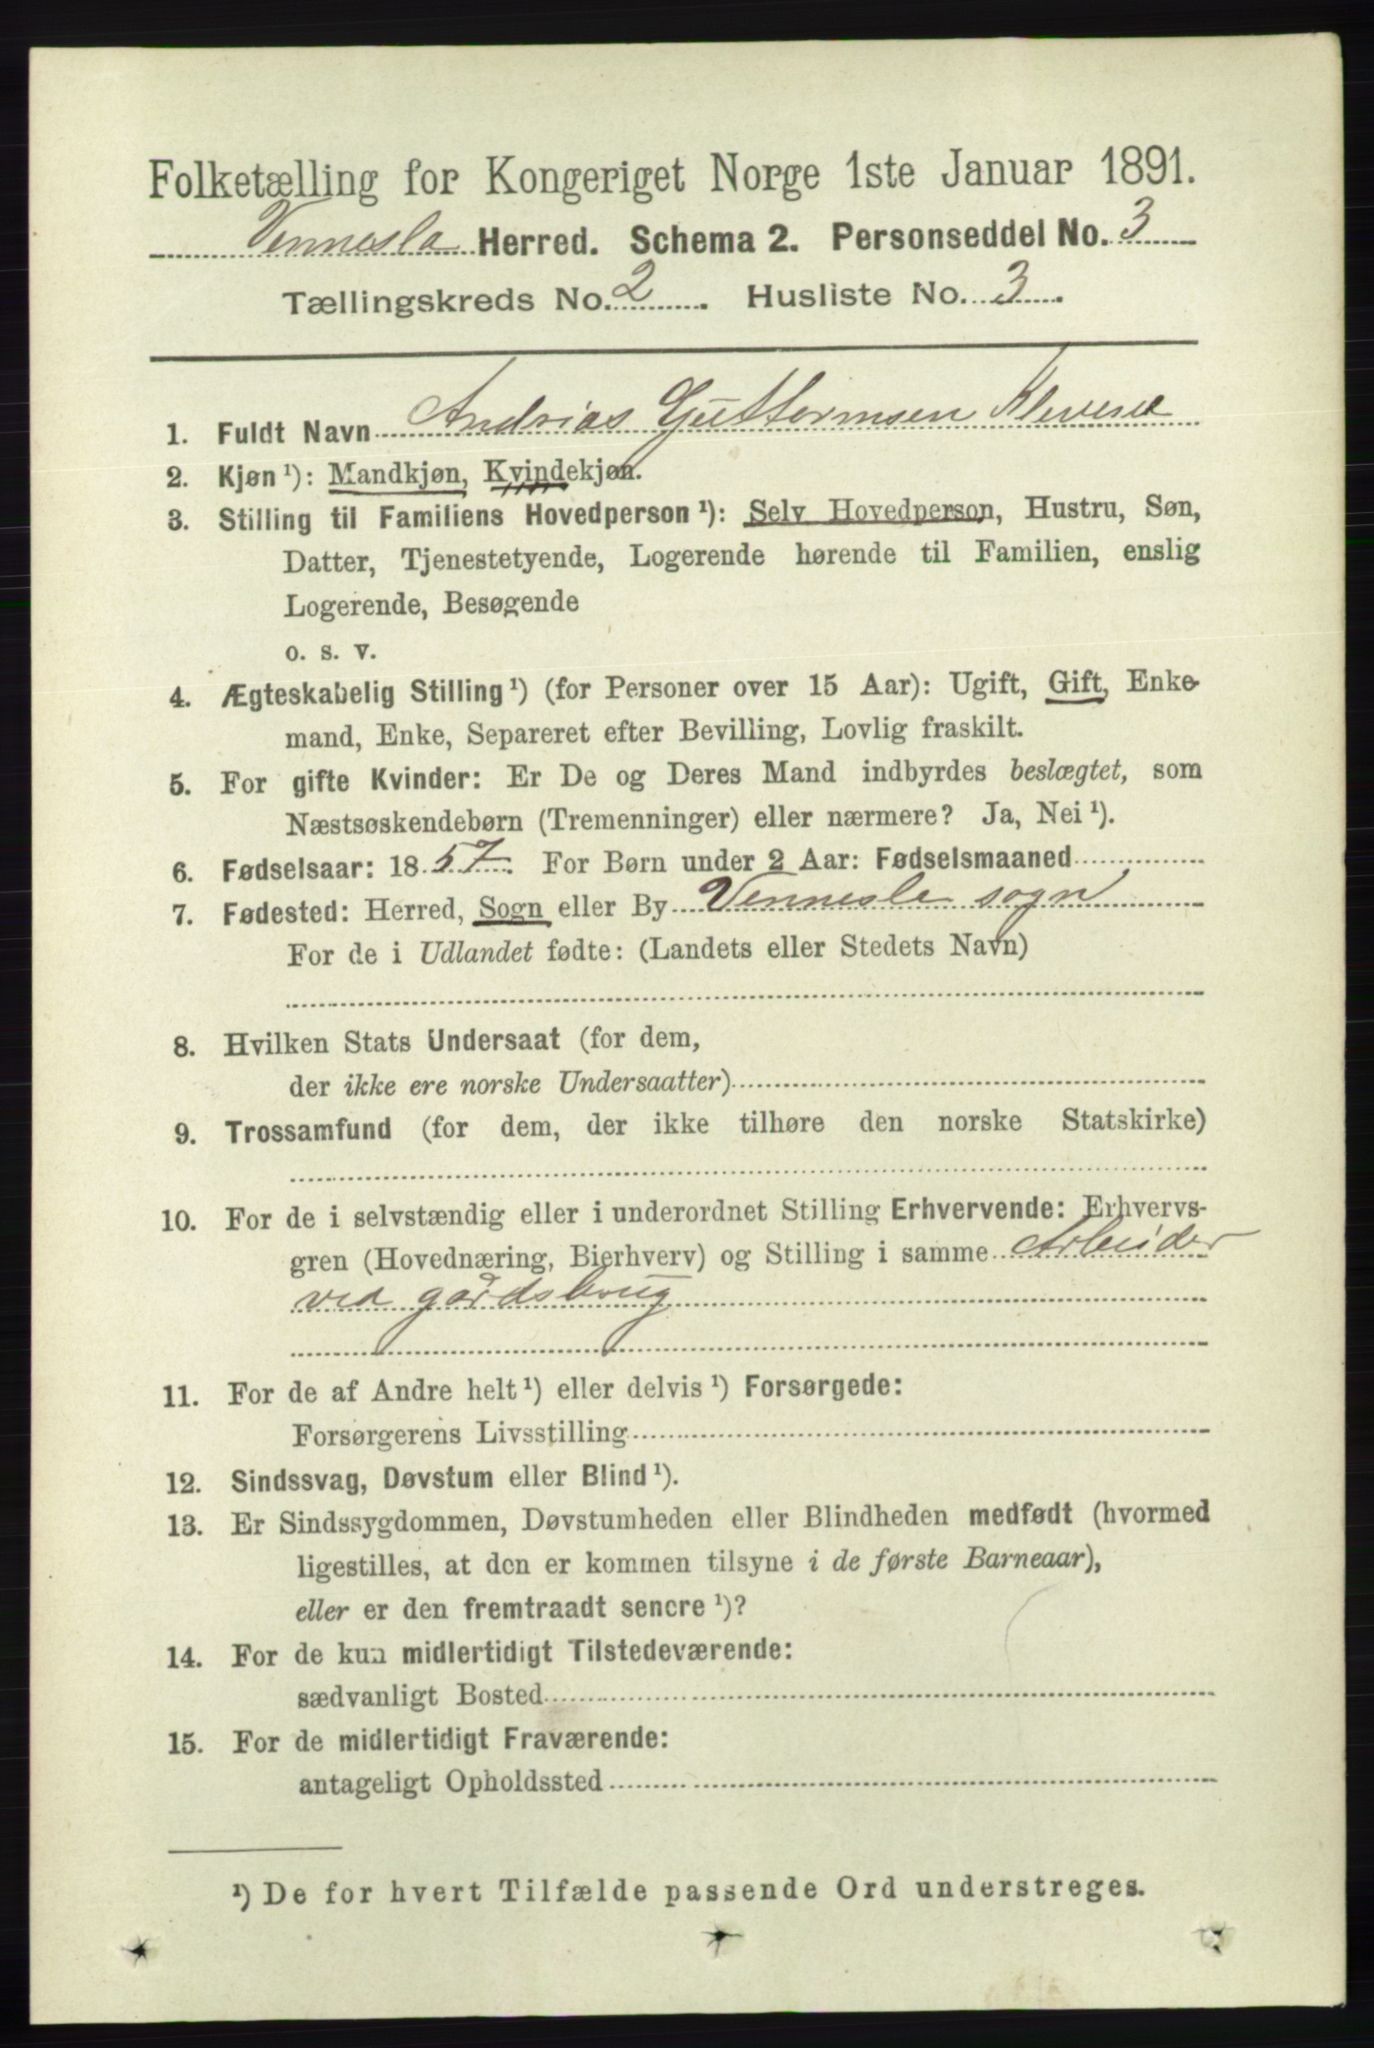 Folketælling for Kongeriget Norge 1ste Januar 1891.
Vennesla Herred. Schema 2. Personseddel No. 3
Tællingskreds No. 2. Husliste No. 3.
1. Fuldt Navn Andrias Guttormsen
2. Kjøn¹): Mandkjøn, Kvindekjøn.
3. Stilling til Familiens Hovedperson¹): Selv Hovedperson, Hustru, Søn,
Datter, Tjenestetyende, Logerende hørende til Familien, enslig
Logerende, Besøgende
o. s. v.
4. Ægteskabelig Stilling¹) (for Personer over 15 Aar): Ugift, Gift, Enke-
mand, Enke, Separeret efter Bevilling, Lovlig fraskilt.
5. For gifte Kvinder: Er De og Deres Mand indbyrdes beslægtet, som
Næstsøskendebørn (Tremenninger) eller nærmere? Ja, Nei¹).
6. Fødselsaar: 1857. For Børn under 2 Aar: Fødselsmaaned
7. Fødested: Herred, Sogn eller By Vennesle sogn
For de i Udlandet fødte: (Landets eller Stedets Navn)
8. Hvilken Stats Undersaat (for dem,
der ikke ere norske Undersaatter)
9. Trossamfund (for dem, der ikke tilhøre den norske Statskirke)
10. For de i selvstændig eller i underordnet Stilling Erhvervende: Erhvervs-
gren (Hovednæring, Bierhverv) og Stilling i samme Arbeider
ved gårdsbrug
11. For de af Andre helt¹) eller delvis¹) Forsørgede:
Forsørgerens Livsstilling
12. Sindssvag, Døvstum eller Blind¹).
13. Er Sindssygdommen, Døvstumheden eller Blindheden medfødt (hvormed
ligestilles, at den er kommen tilsyne i de første Barneaar),
eller er den fremtraadt senere¹)?
14. For de kun midlertidigt Tilstedeværende:
sædvanligt Bosted
15. For de midlertidigt Fraværende:
antageligt Opholdssted
¹) De for hvert Tilfælde passende Ord understreges.